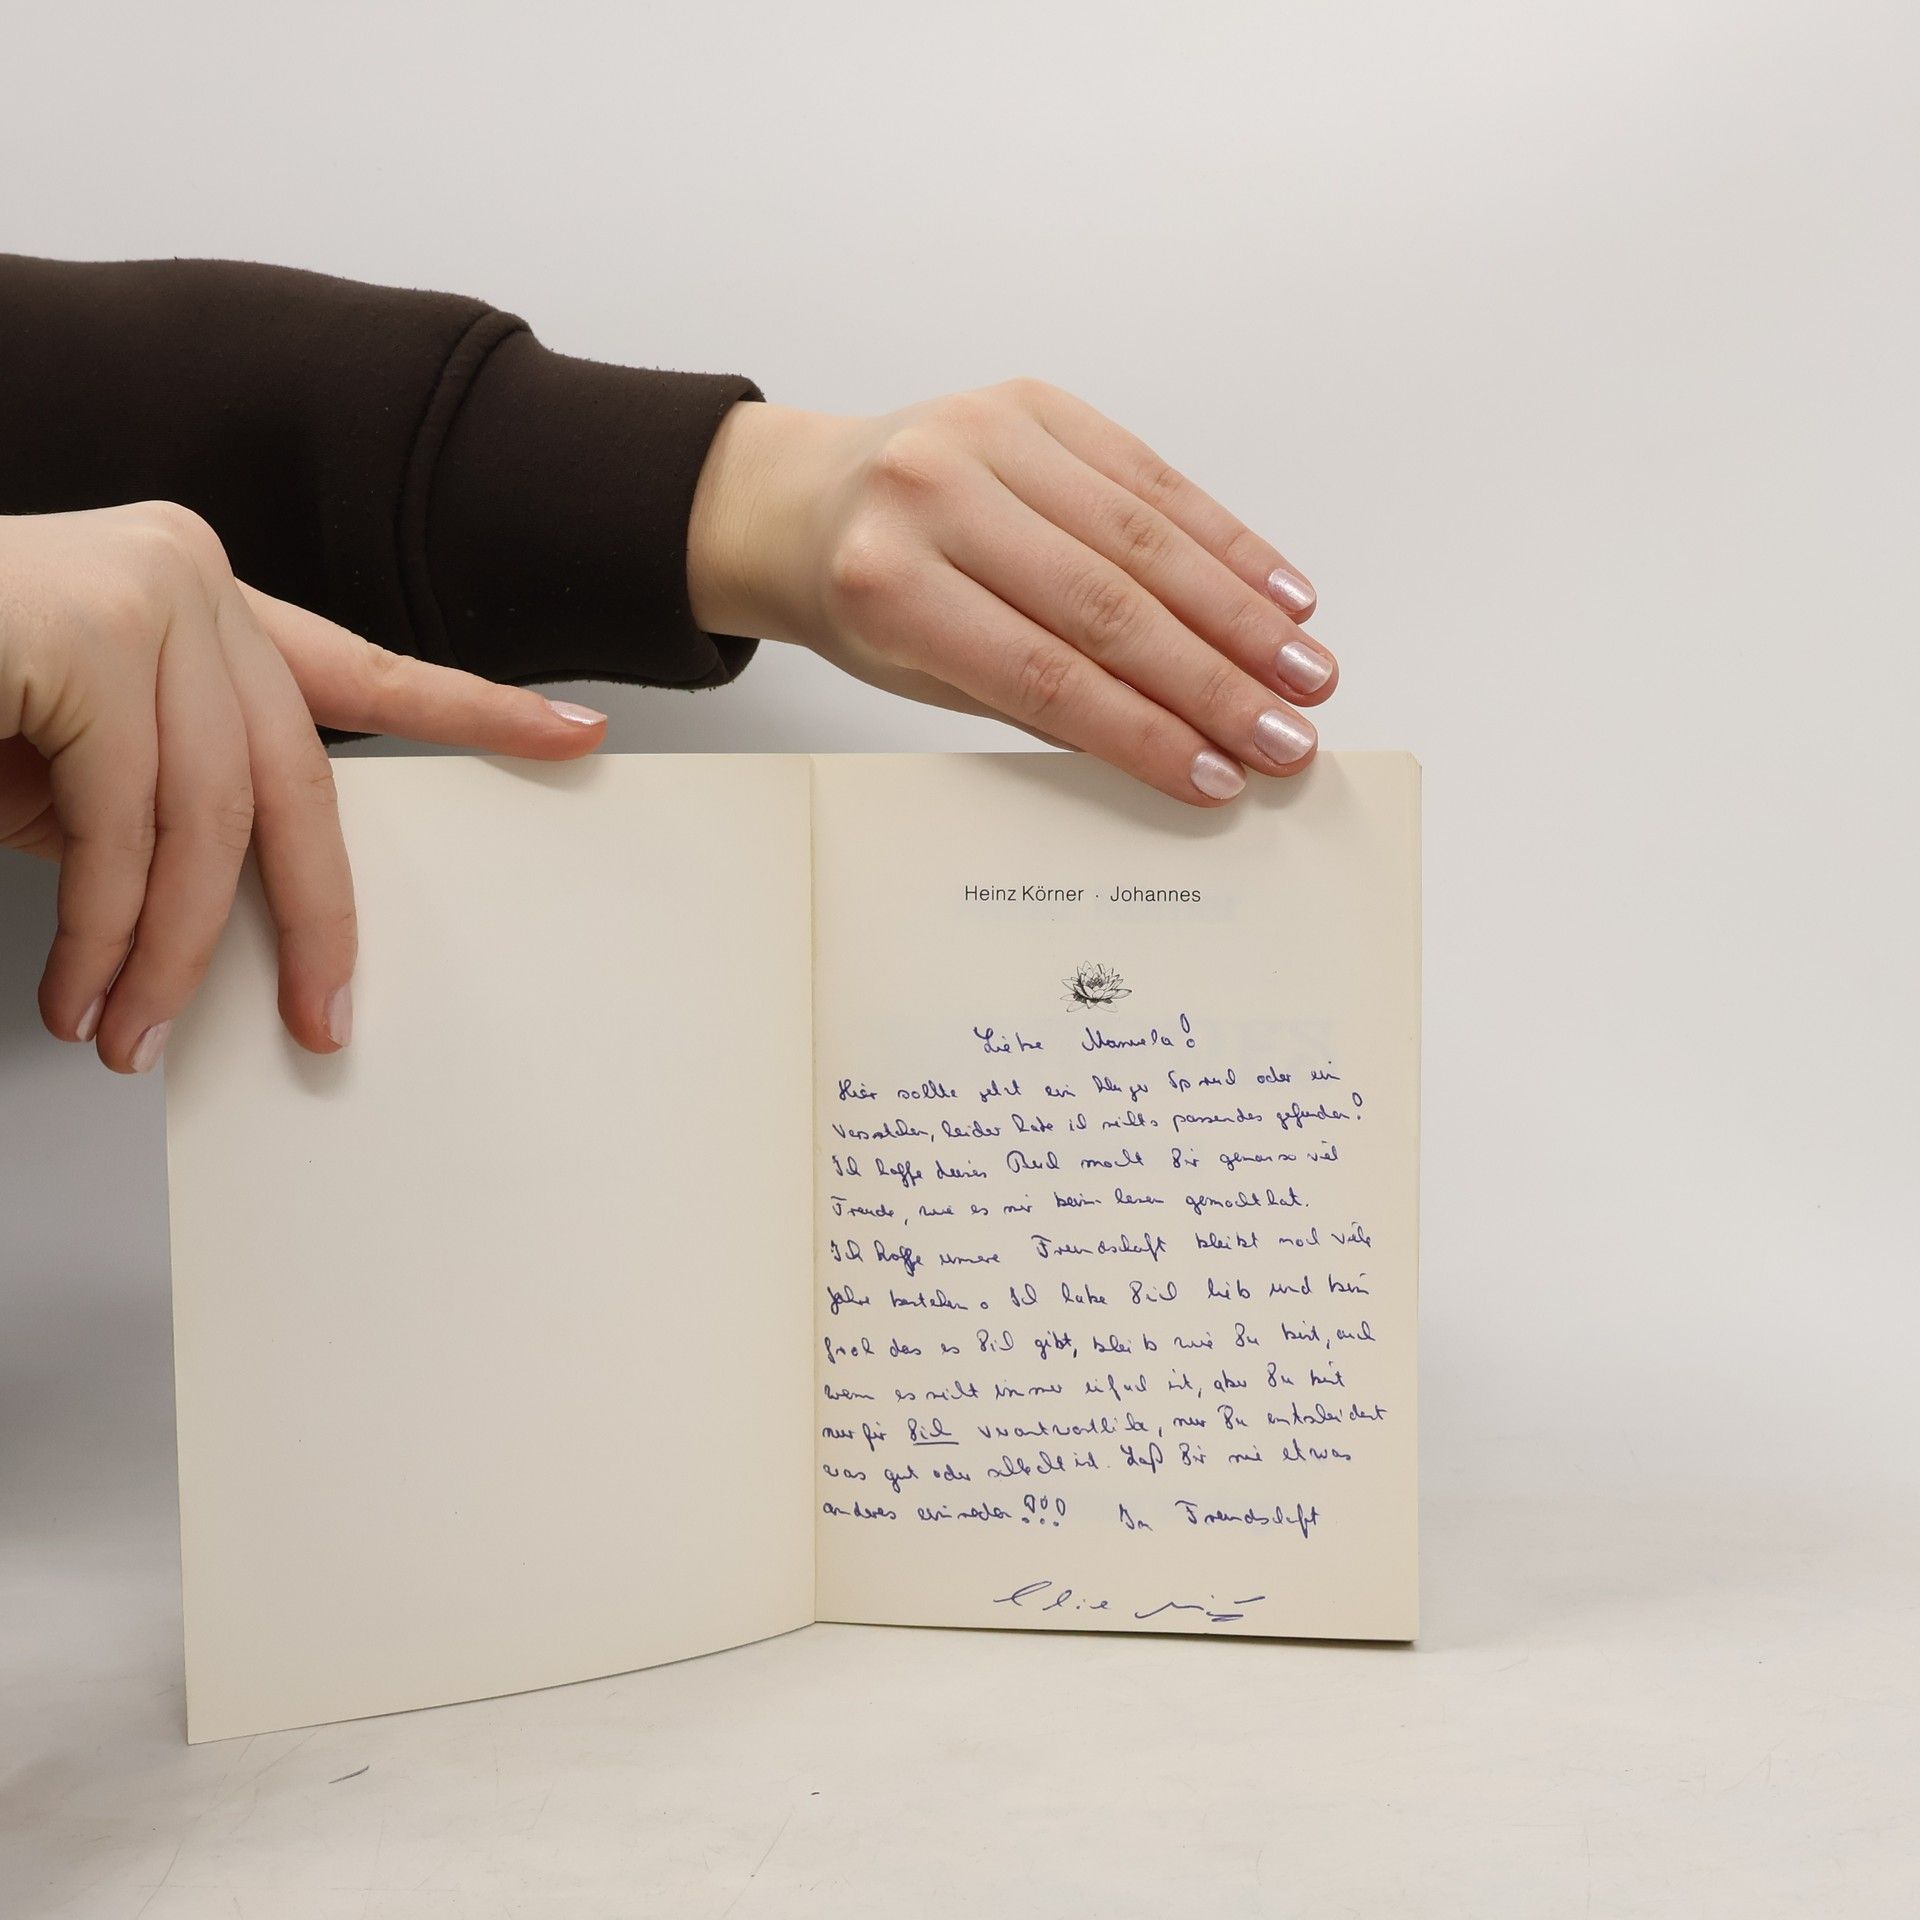 Heinz Körner · Johannes
Liebe Manuela!
Hier sollte jetzt ein kluger Spruch oder ein
Verschen, leider habe ich nichts passendes gefunden!
Ich hoffe dieses Buch macht Dir genauso viel
Freude, wie es mir beim lesen gemacht hat.
Ich hoffe unsere Freundschaft bleibt noch viele
Jahre bestehen. Ich habe Dich lieb und bin
froh das es Dich gibt, bleib wie Du bist, auch
wenn es nicht immer einfach ist, aber Du bist
nur für Dich verantwortlich, nur Du entscheidest
was gut oder schlecht ist. Laß Dir nie etwas
anderes einreden!!! In Freundschaft